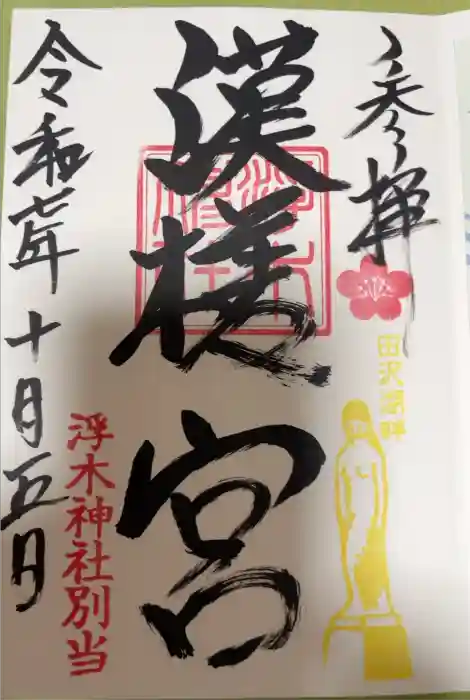 奉拝
田沢湖畔
漢槎宮
浮木神社別当
令和七年十月五日